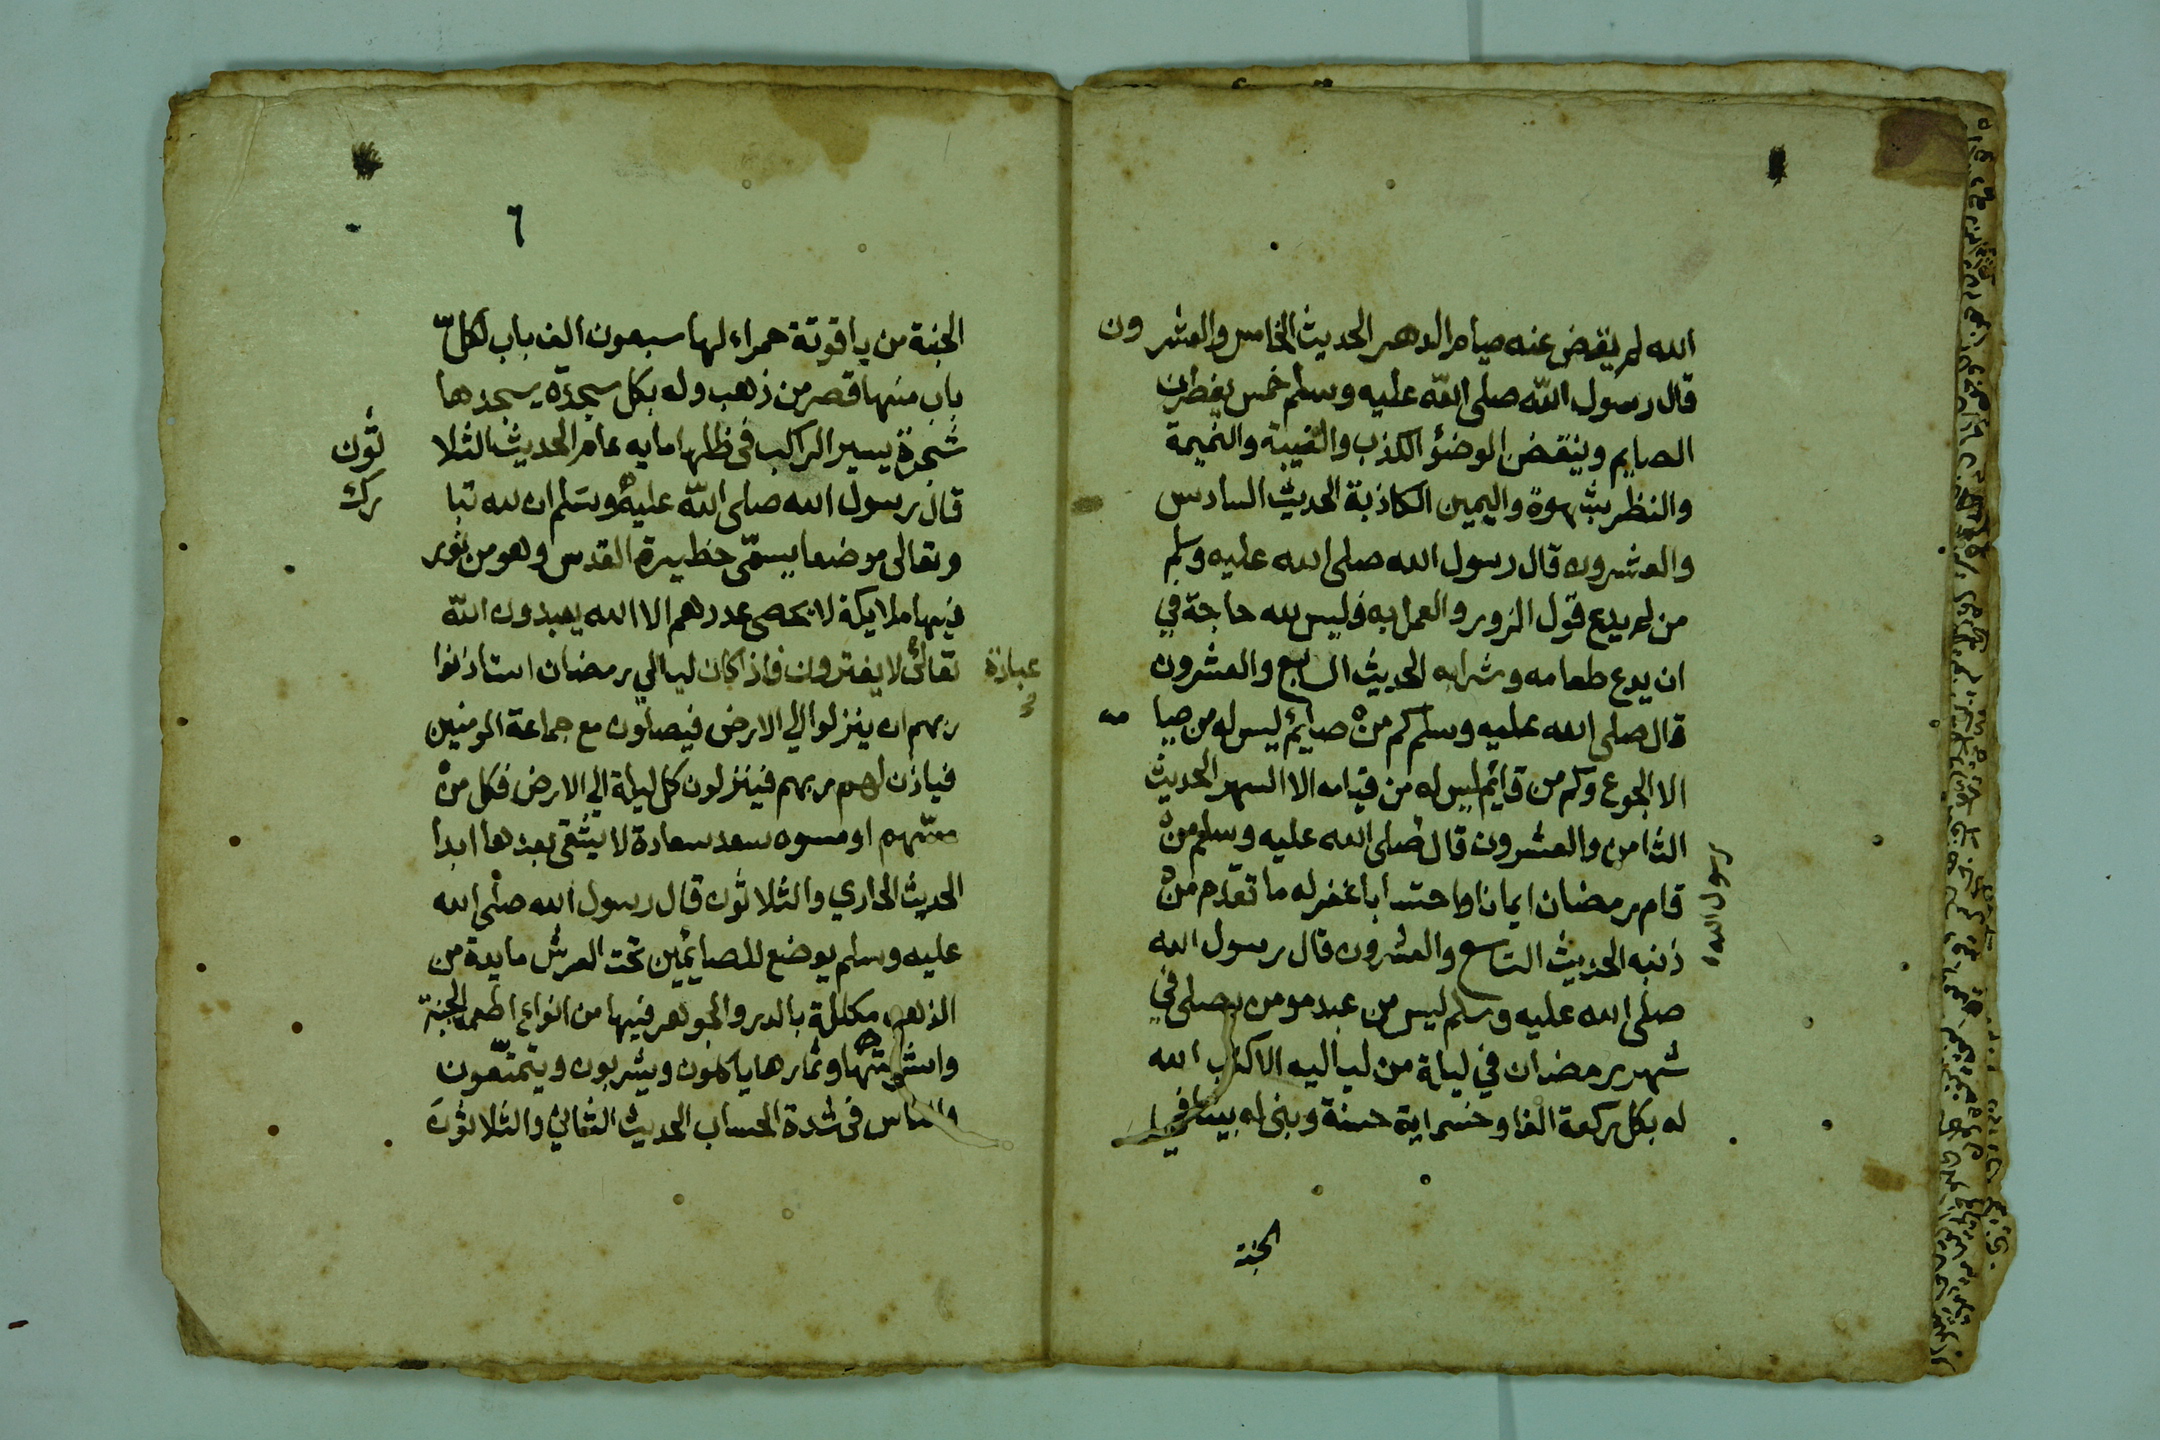 الله لم يقض عنه صيام الدهر الحديث الخامس والعشرون
قال رسول الله صلى الله عليه وسلم خمس يفطرن
الصايم وينقض الوضؤ الكذب والغيبة والنميمة
والنظر بشهوة واليمين الكاذبة الحديث السادس
والعشرون قال رسول الله صلى الله عليه وسلم
من لم يدع قول الزور والعمل به فليس لله حاجة في
ان يدع طعامه وشرابه الحديث السابع والعشرون
قال صلى الله عليه وسلم كم من صائم ليس له من صيامه
الا الجوع وكم من قائم ليس له من قيامه الا السهر الحديث
الثامن والعشرون قال صلى الله عليه وسلم من
رسول الله
قام رمضان ايمانا واحتسابا غفر له ما تقدم من
ذنبه الحديث التاسع والعشرون قال رسول الله
صلى الله عليه وسلم ليس من عبد مومن يصلي في
شهر رمضان في ليلة من لياليه الا كتب الله
له بكل ركعة الفا وخمسماية حسنة وبنى له بيتا في
الجنة
٦
الجنة من ياقوتة حمراء لها سبعون الف باب لكل
باب منها قصر من ذهب وله بكل سجدة يسجدها
شجرة يسير الراكب في ظلها مايه عام الحديث الثلاثون
قال رسول الله صلى الله عليه وسلم ان لله تبارك
وتعالى موضعا يسمى حظيرة القدس وهو من نور
فيها ملايكة لا يحصى عددهم الا الله يعبدون الله
تعالى لا يفترون فاذا كان ليالي رمضان استاذنوا
عبادة
ربهم ان ينزلوا الي الارض فيصلون مع جماعة المومنين
فياذن لهم ربهم فينزلون كل ليلة الي الارض فكل من
مسهم او مسوه سعد سعادة لا يشقى بعدها ابدا
الحديث الحادي والثلاثون قال رسول الله صلى الله
عليه وسلم يوضع للصايمين تحت العرش مايدة من
الذهب مكللة بالدر والجوهر فيها من انواع اطعمة الجنة
واشربتها وثمارها ياكلون ويشربون ويتمتعون
والناس في شدة الحساب الحديث الثاني والثلاثون